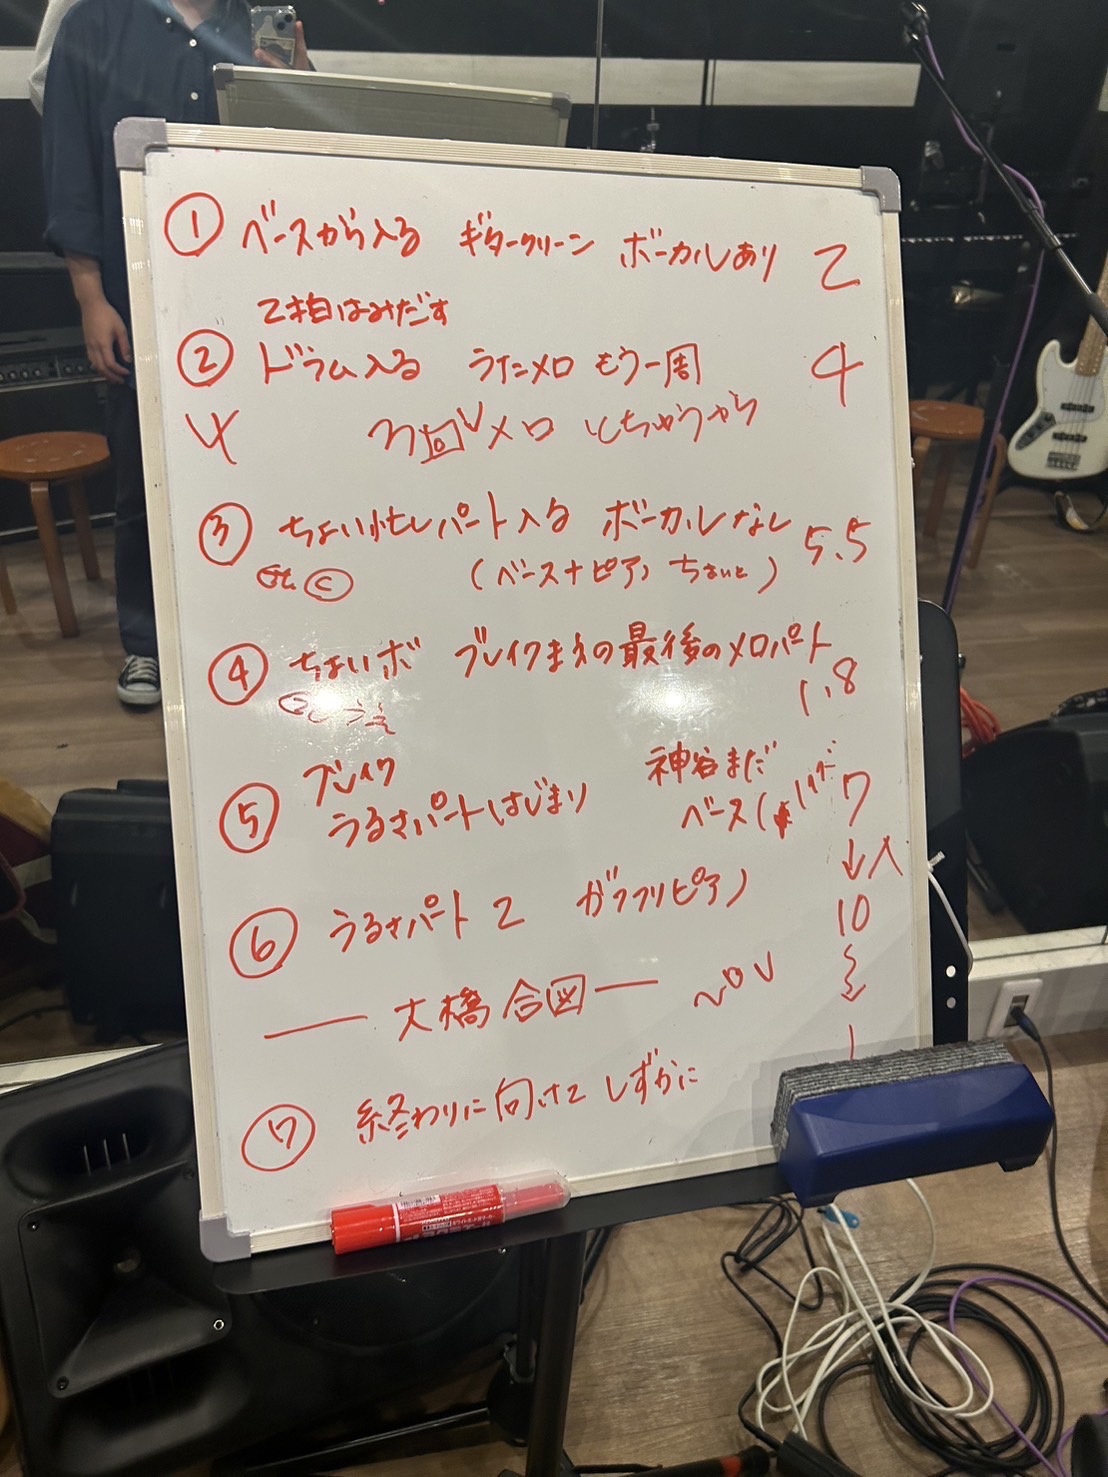 ① ベースから入る ギタークリーン ボーカルあり 2
2拍はみだす
② ドラム入る うたメロ もう一周 4
4 3回 メロ とちゅうから
③ ちょい忙しパート入る ボーカルなし 5.5
Gt. C (ベース+ピアノ ちょいと)
④ ちょいボ ブレイクまえの最後のメロパート
1.8
⑤ ブレイク 神谷まだ
うるさパートはじまり ベース( 7
↓
⑥ うるさパート2 ガフフリピアノ 10
— 大橋合図 —
1
⑦ 終わりに向けて しずかに